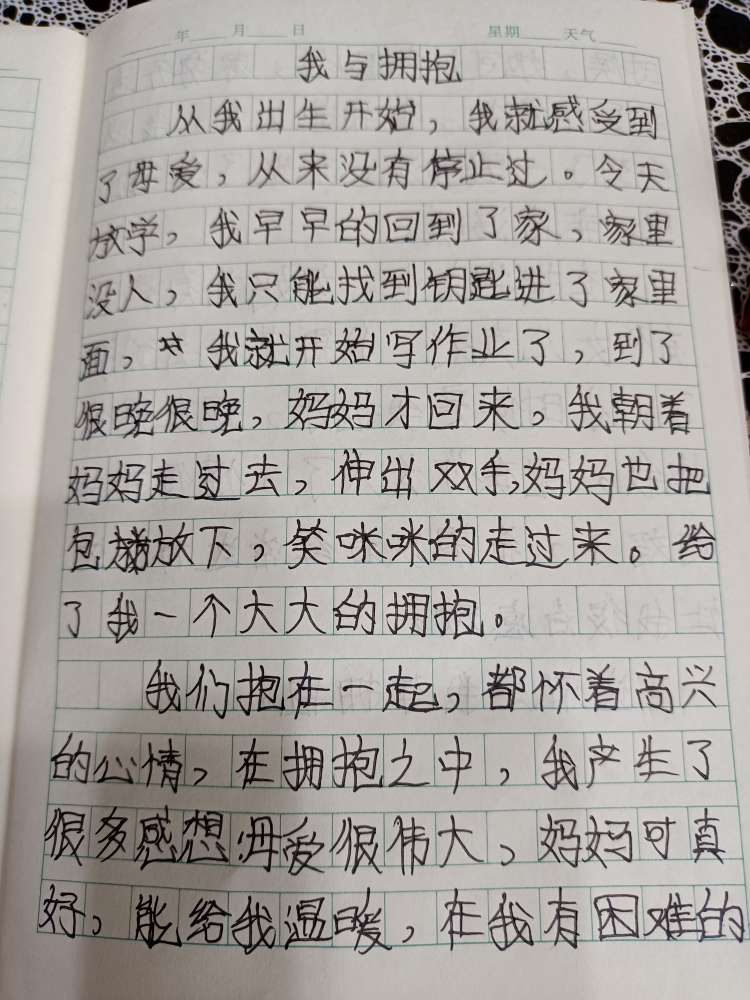 年 月 日 星期 天气
我与拥抱
从我出生开始，我就感受到
了母爱，从来没有停止过。今天
放学，我早早的回到了家，家里
没人，我只能找到钥匙进了家里
面，我就开始写作业了，到了
很晚很晚，妈妈才回来，我朝着
妈妈走过去，伸出双手，妈妈也把
包放下，笑咪咪的走过来。给
了我一个大大的拥抱。
我们抱在一起，都怀着高兴
的心情，在拥抱之中，我产生了
很多感想母爱很伟大，妈妈可真
好，能给我温暖，在我有困难的